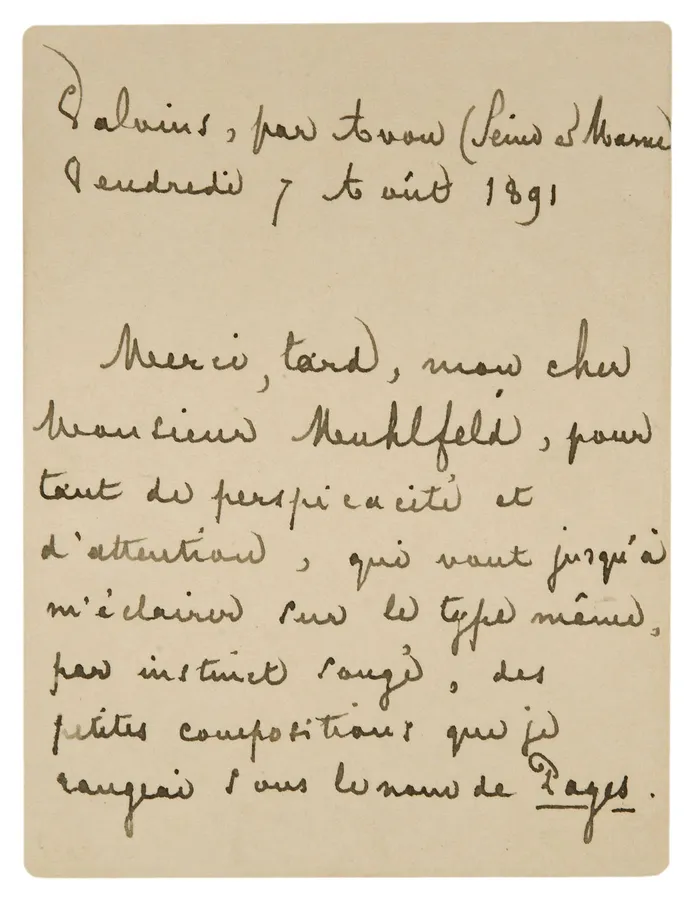 Valvins, par Avon (Seine et Marne
Vendredi 7 Août 1891
Merci, tard, mon cher
Monsieur Meuhlfeld, pour
tant de perspicacité et
d'attention, qui vont jusqu'à
m'éclairer sur le type même,
par instinct songé, des
petites compositions que je
rangeai sous le nom de Pages.